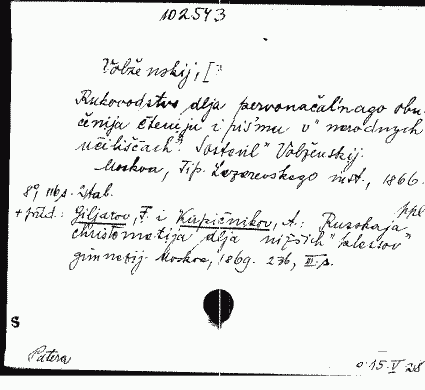 102543
Volženskij, [?
Rukovodstvo dlja pervonačal'nago obu-
čenija čteniju i pis'mu v" narodnych
učiliščach". Sostavil" Volženskij.
Moskva, Tip. Lazarevskago inst., 1866.
8°, 116 s. 2 tab.
ppl
+ přid.: Giljarov, F. i Kirpičnikov, A.: Russkaja
christomatija dlja nizšich" klassov"
gimnazij. Moskva, 1869. 236, III s.
S
Patera
o 15. V 28